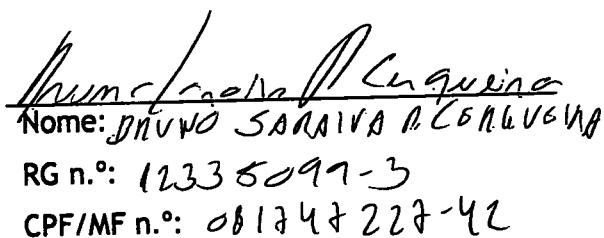 Nome: BRUNO SARAIVA P. CERQUEIRA
RG n.º: 12335099-3
CPF/MF n.º: 081747227-42